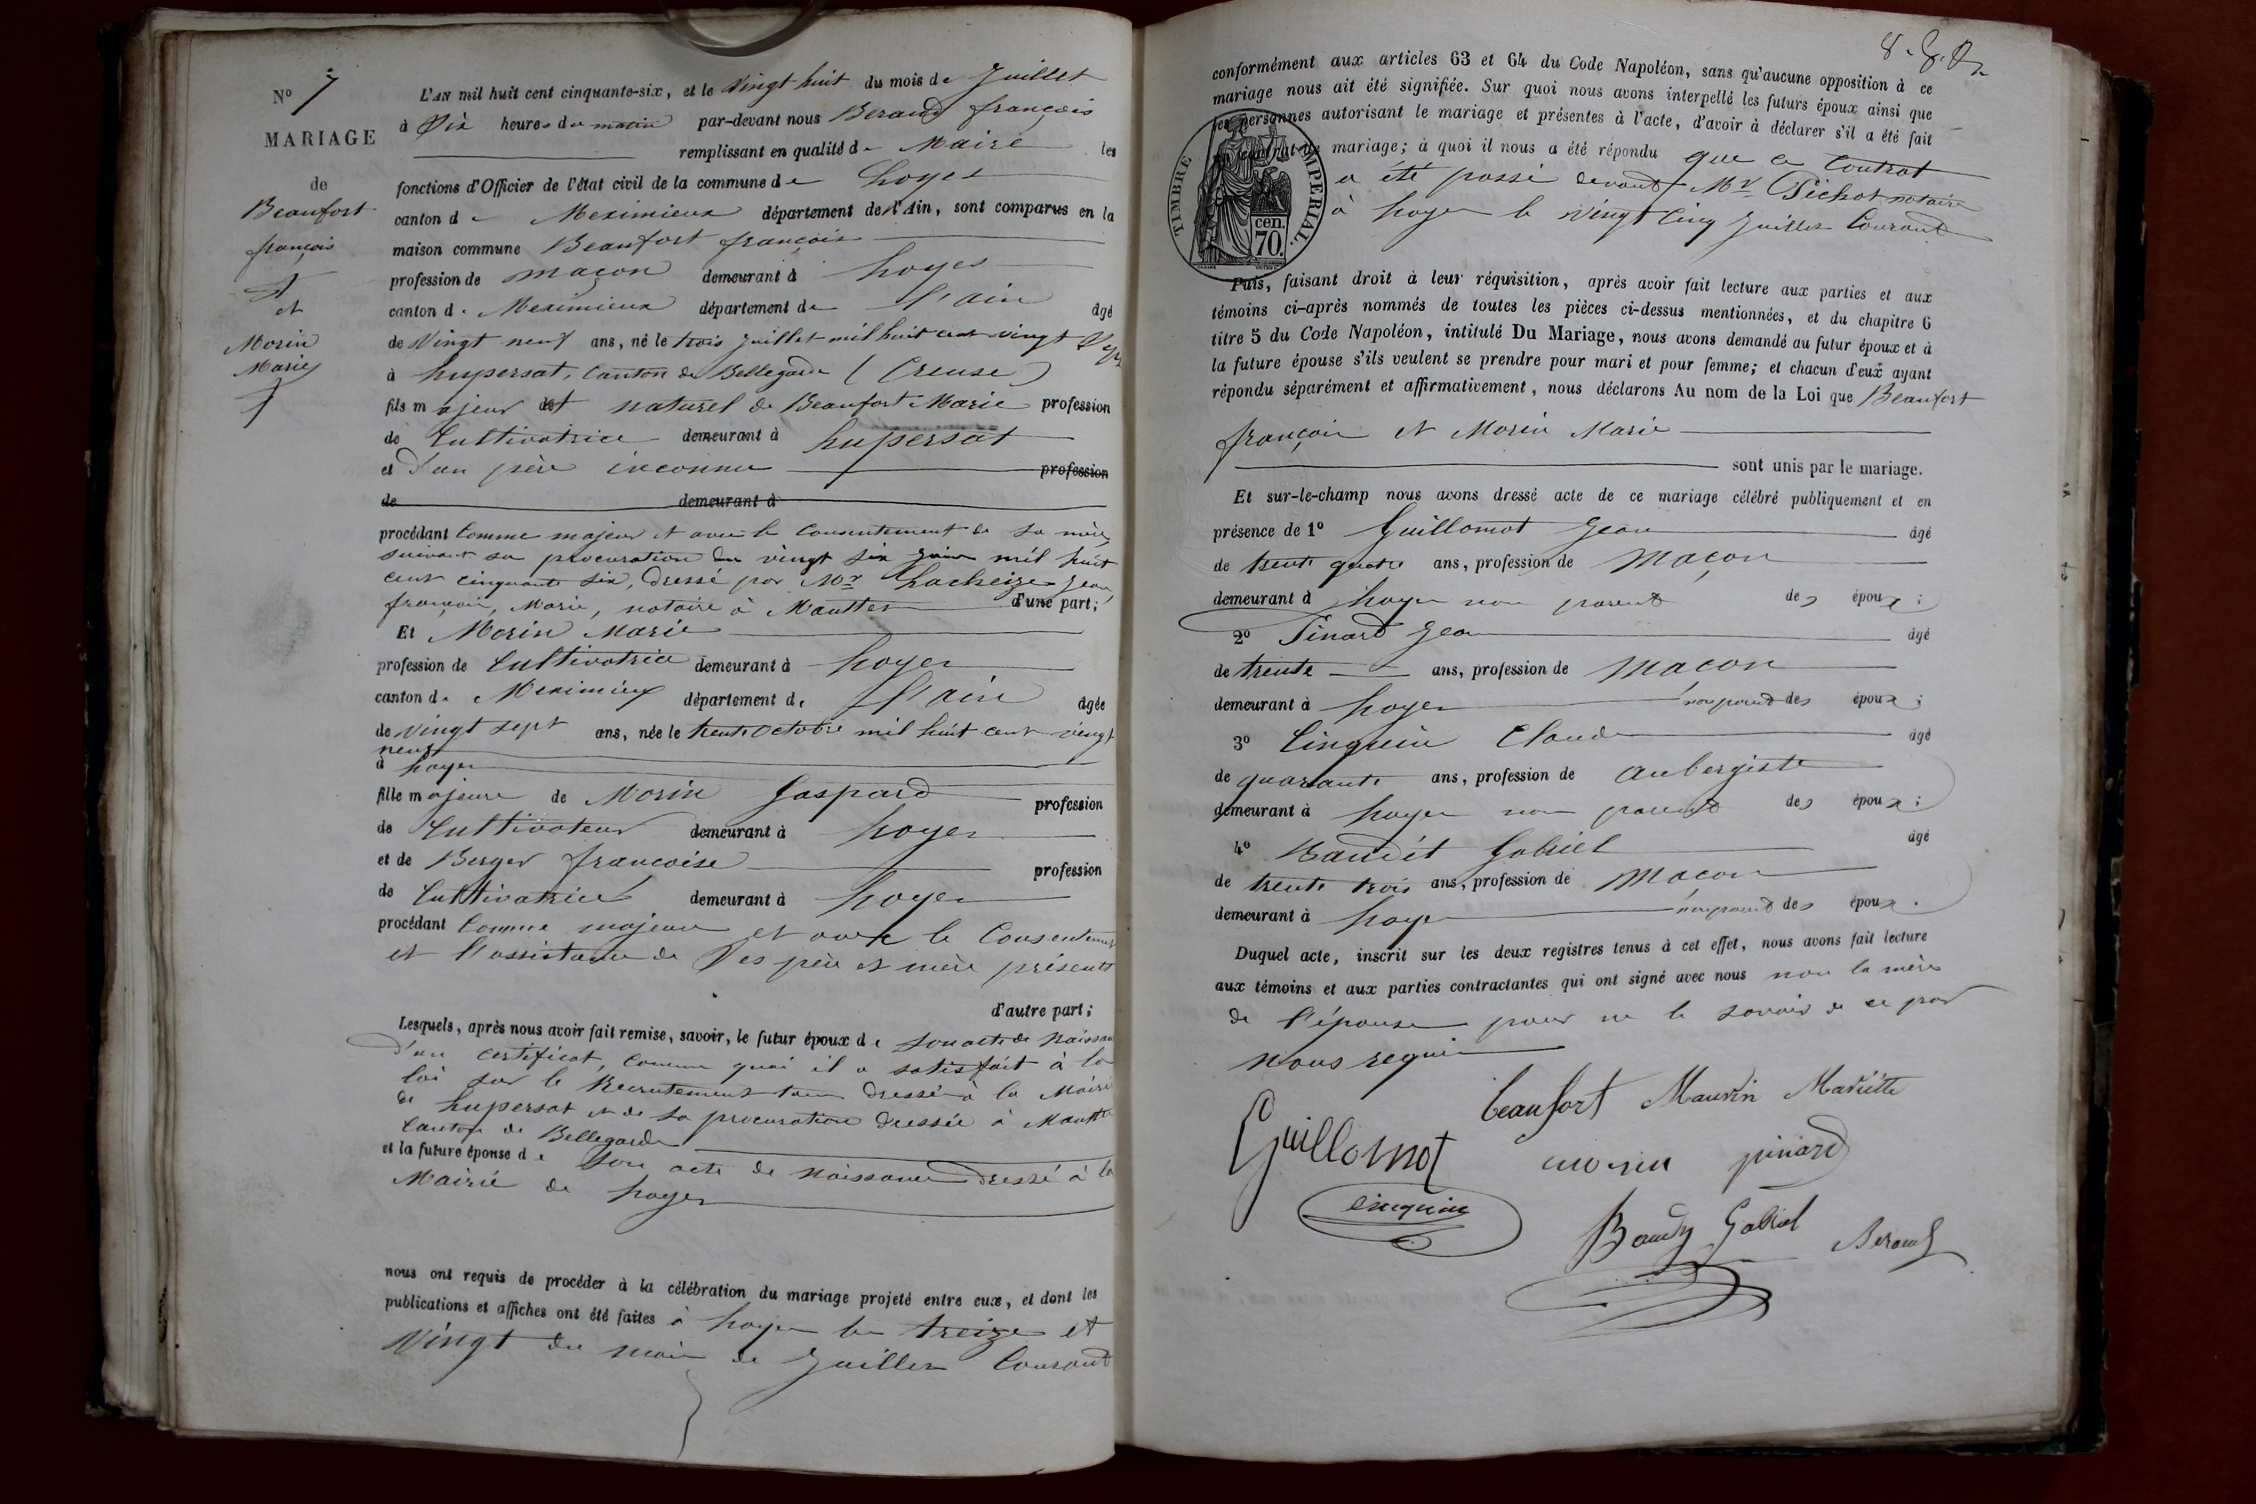 N° 7
MARIAGE
de
Beaufort
françois
et
Morin
Marie
L'AN mil huit cent cinquante-six, et le Vingt huit du mois de Juillet
à Dix heures du matin par-devant nous Beraud françois
remplissant en qualité de Maire les
fonctions d'Officier de l'état civil de la commune de Loyes
canton de Meximieux département de l'Ain, sont comparus en la
maison commune Beaufort françois
profession de maçon demeurant à Loyes
canton de Meximieux département de l'ain âgé
de Vingt neuf ans, né le trois juillet mil huit cent vingt Sept
à Lupersat, Canton de Bellegarde (Creuse)
fils majeur et naturel de Beaufort Marie profession
de Cultivatrice demeurant à Lupersat
et d'un père inconnu profession
de demeurant à
procédant Comme majeur et avec le Consentement de sa mère
suivant sa procuration du vingt six juin mil huit
cent cinquante six, dressé par Mr Lacheize Jean
françois, Marie, notaire à Mautes d'une part;
Et Morin Marie
profession de Cultivatrice demeurant à Loyes
canton de Meximieux département de l'ain âgée
de Vingt sept ans, née le trente octobre mil huit cent vingt
neuf
à Loyes
fille majeure de Morin Gaspard profession
de Cultivateur demeurant à Loyes
et de Berger francoise profession
de Cultivatrice demeurant à Loyes
procédant Comme majeure et avec le Consentement
et l'assistance de Ses père et mère présents
d'autre part;
Lesquels, après nous avoir fait remise, savoir, le futur époux de son acte de Naissance
d'un certificat, comme quoi il a satisfait à la
loi sur le Recrutement dressé à la Mairie
de Lupersat et de sa procuration dressée à Mautes
Canton de Bellegarde
et la future épouse de son acte de naissance dressé à la
Mairie de Loyes
nous ont requis de procéder à la célébration du mariage projeté entre eux, et dont les
publications et affiches ont été faites à Loyes les treize et
Vingt du mois de Juillet Courant
conformément aux articles 63 et 64 du Code Napoléon, sans qu'aucune opposition à ce
mariage nous ait été signifiée. Sur quoi nous avons interpellé les futurs époux ainsi que
les personnes autorisant le mariage et présentes à l'acte, d'avoir à déclarer s'il a été fait
un contrat de mariage; à quoi il nous a été répondu que ce Contrat
a été passé devant Mr Pichot notaire
à Loyes le vingt cinq juillet Courant
TIMBRE IMPERIAL.
cen.
70.
Puis, faisant droit à leur réquisition, après avoir fait lecture aux parties et aux
témoins ci-après nommés de toutes les pièces ci-dessus mentionnées, et du chapitre 6
titre 5 du Code Napoléon, intitulé Du Mariage, nous avons demandé au futur époux et à
la future épouse s'ils veulent se prendre pour mari et pour femme; et chacun d'eux ayant
répondu séparément et affirmativement, nous déclarons Au nom de la Loi que Beaufort
françois et Morin Marie
sont unis par le mariage.
Et sur-le-champ nous avons dressé acte de ce mariage célébré publiquement et en
présence de 1° Guillomot Jean âgé
de trente quatre ans, profession de Maçon
demeurant à Loyes non parent des époux;
2° Pinard Jean âgé
de trente ans, profession de Maçon
demeurant à Loyes non parent des époux;
3° Cinquin Claude âgé
de quarante ans, profession de aubergiste
demeurant à Loyes non parent des époux;
4° Baudit Gabriel âgé
de trente trois ans, profession de Maçon
demeurant à Loyes non parent des époux.
Duquel acte, inscrit sur les deux registres tenus à cet effet, nous avons fait lecture
aux témoins et aux parties contractantes qui ont signé avec nous non la mère
de l'épouse pour ne le savoir de ce par
nous requis
beaufort Maurin Mariette
Guillomot morin pinard
cinquin
Baudy Gabriel Beraud